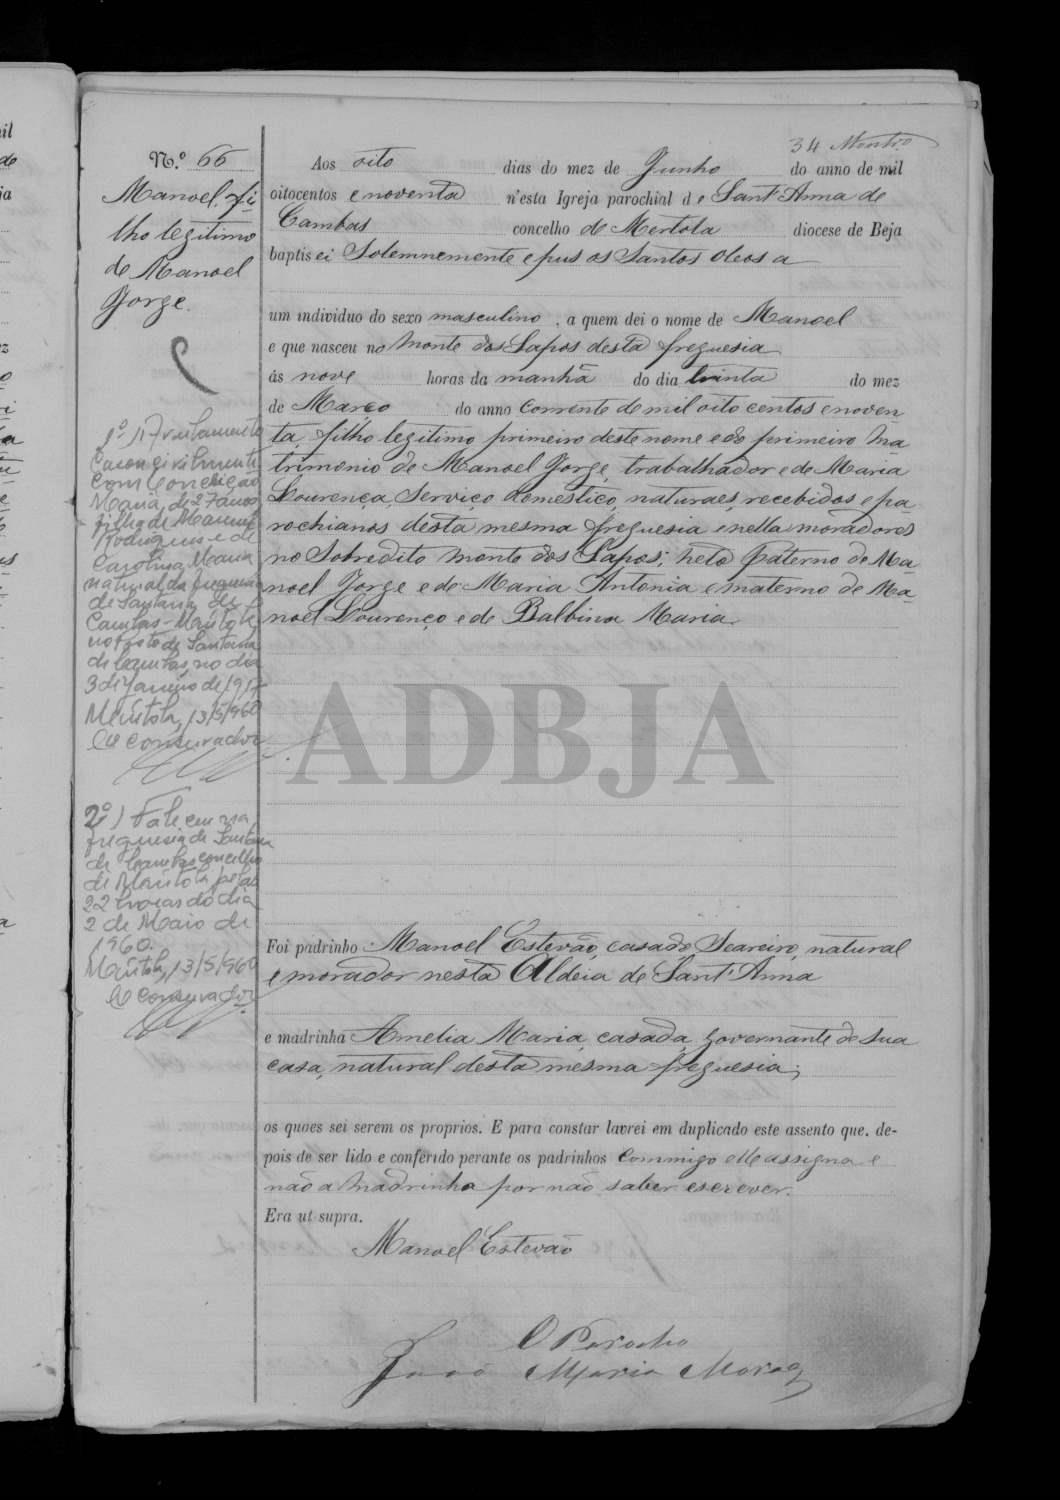 34
N.º 66
Manoel, fi-
lho legitimo
de Manoel
Jorge.
Aos oito dias do mez de Junho do anno de mil
oitocentos e noventa n'esta Igreja parochial de Sant'Anna de
Cambas concelho de Mertola diocese de Beja
baptisei Solemnemente e pus os Santos Oleos a
um individuo do sexo masculino, a quem dei o nome de Manoel
e que nasceu no Monte dos Sapos desta freguesia
ás nove horas da manhã do dia trinta do mez
de Março do anno corrente de mil oito centos e noven-
ta, filho legitimo primeiro deste nome e do primeiro Ma-
trimonio de Manoel Jorge, trabalhador e de Maria
Lourença, Serviço domestico, naturaes, recebidos e pa-
rochianos desta mesma freguesia e nella moradores
no Sobredito monte dos Sapos; neto paterno de Ma-
noel Jorge e de Maria Antonia e materno de Ma-
noel Lourenço e de Balbina Maria.
Foi padrinho Manoel Estevão, casado, Seareiro, natural
e morador nesta Aldeia de Sant'Anna
e madrinha Amelia Maria, casada, governante de sua
casa, natural desta mesma freguesia;
os quaes sei serem os proprios. E para constar lavrei em duplicado este assento que, de-
pois de ser lido e conferido perante os padrinhos commigo elle assigna e
não a Madrinha por não saber escrever.
Era ut supra.
Manoel Estevão
O Parocho
João Maria
1.º
Casou civilmente
com Conceição
Maria, de 27 anos
filha de Manuel
Rodrigues e de
Carolina Maria
natural da freguesia
de Santana de
Cambas - Mértola
no posto de Santana
de Cambas, no dia
3 de Janeiro de 1917
Mértola, 13/5/960
O Conservador
2.º) Faleceu na
freguesia de Santana
de Cambas concelho
de Mértola pelas
22 horas do dia
2 de Maio de
1960.
Mértola, 13/5/960
O Conservador
ADBJA